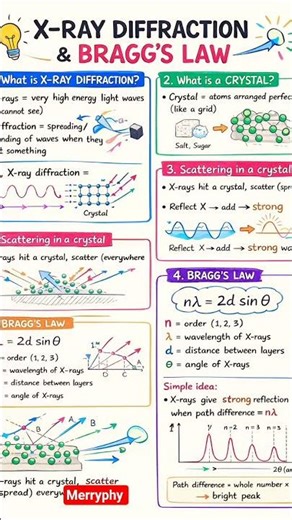 X-RAY DIFFRACTION
& BRAGG'S LAW
What is X-RAY DIFFRACTION?
rays = very high energy light waves
cannot see)
ffraction = spreading/
nding of waves when they
t something
X-ray diffraction =
Crystal
2. What is a CRYSTAL?
• Crystal = atoms arranged perfec
(like a grid)
Salt, Sugar
3. Scattering in a crystal
• X-rays hit a crystal, scatter (spr
• Reflect X → add → strong
Reflect X → add → strong wa
Scattering in a crystal
rays hit a crystal, scatter (everywhere
BRAGG'S LAW
= 2d sinθ
order (1, 2, 3)
= wavelength of X-rays
= distance between layers
= angle of X-rays
4. BRAGG'S LAW
nλ = 2d sinθ
n = order (1, 2, 3)
λ = wavelength of X-rays
d = distance between layers
θ = angle of X-rays
Simple idea:
• X-rays give strong reflection
when path difference = nλ
n=1 n=2 n=3
2θ
Path difference = whole number ×
→ bright peak
rays hit a crystal, scatter
spread) everyw
Merryphy